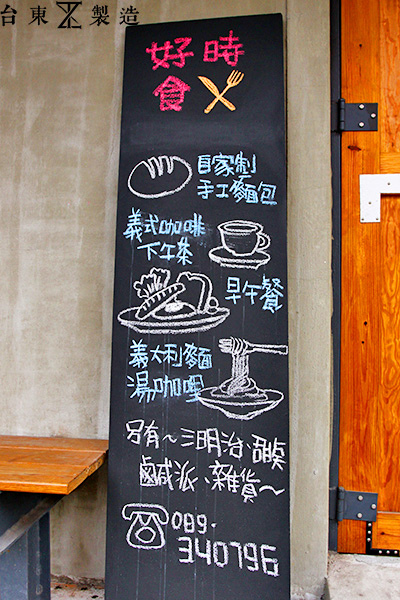 台東製造
好時
食
自家制
手工麵包
義式咖啡
下午茶
早午餐
義大利麵
湯咖哩
另有~三明治、甜點
鹹派、雜貨~
089-
340796